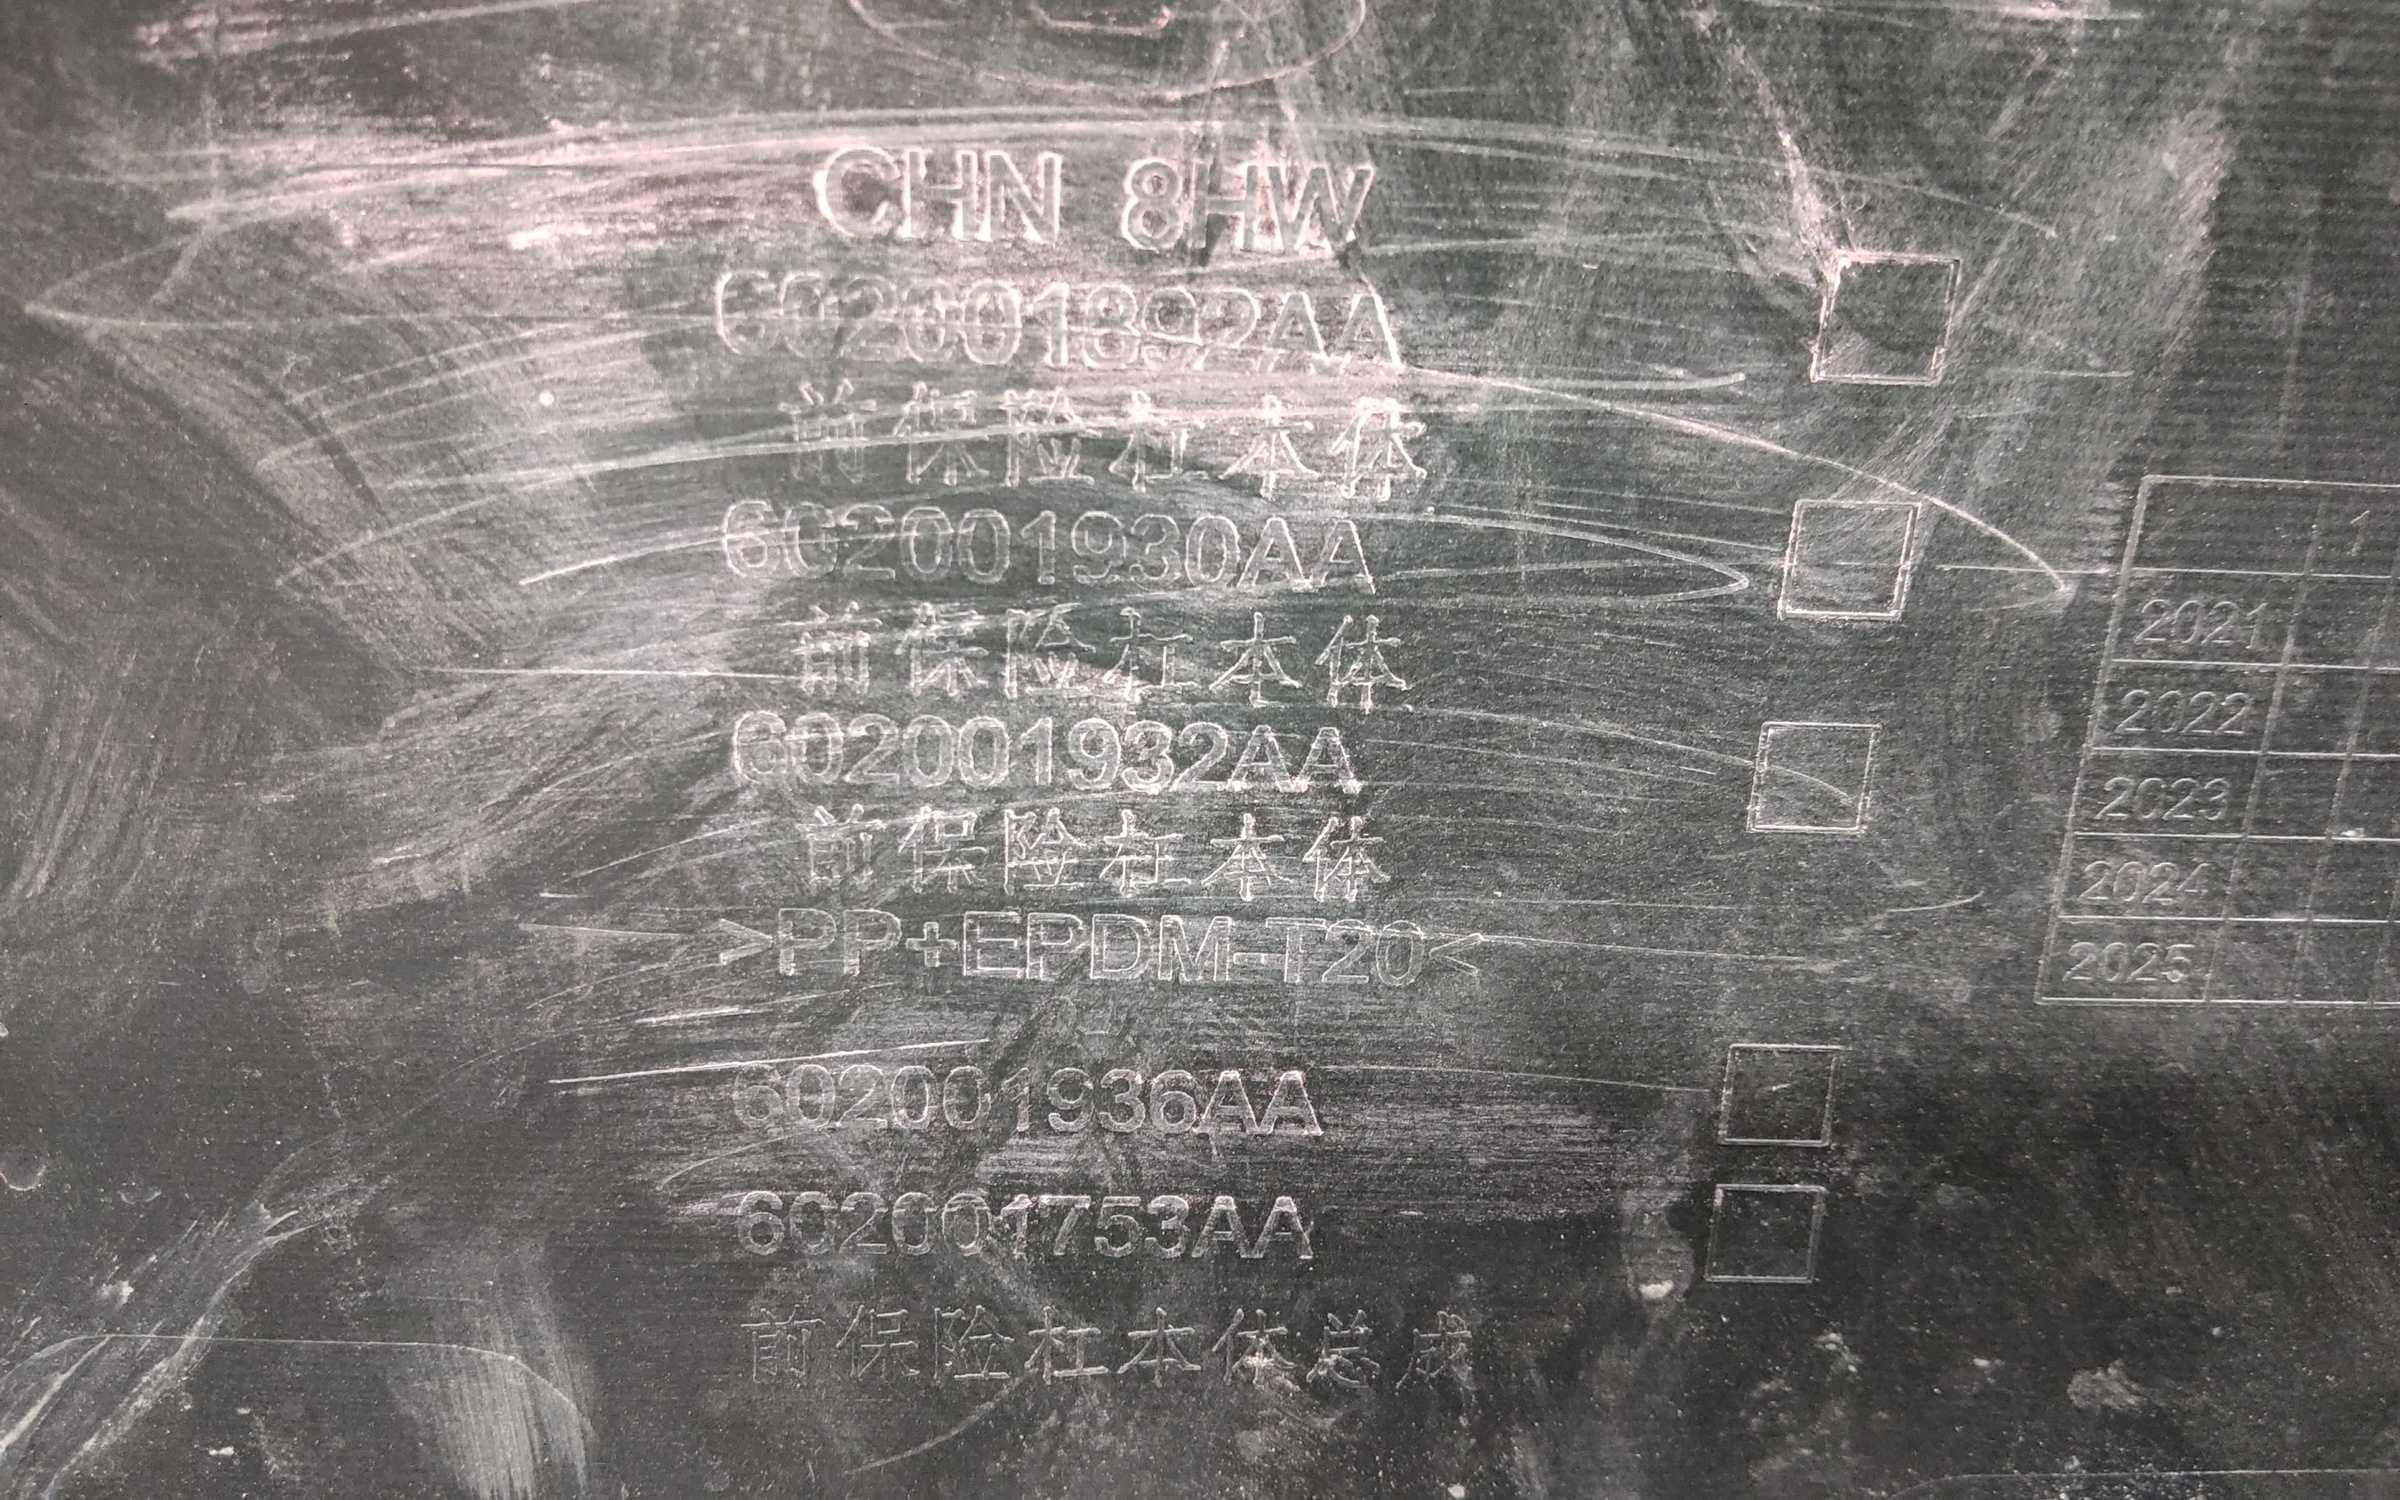 CHN 8HW
602001892AA
前保险杠本体
602001930AA
前保险杠本体
602001932AA
前保险杠本体
>PP+EPDM-T20<
602001936AA
602001753AA
前保险杠本体总成
1
2021
2022
2023
2024
2025